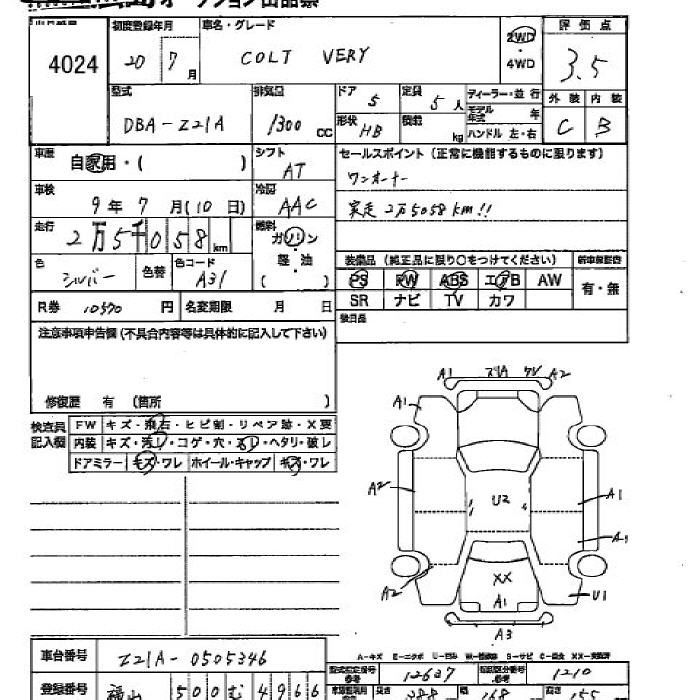 オークション出品票
4024
初度登録年月
20 7月
車名・グレード
COLT VERY
2WD
・
4WD
評価点
3.5
型式
DBA-Z21A
排気量
1300 cc
ドア 5
定員 5人
形状 HB
積載 kg
ディーラー・並行
モデル年式 年
ハンドル 左・右
外装 内装
C B
車歴 自家用・( )
シフト AT
セールスポイント(正常に機能するものに限ります)
ワンオーナー
実走 2万5058km!!
車検 9年7月(10日)
冷房 AAC
走行 2万5千058km
燃料 ガソリン
・
軽・油
( )
色 シルバー
色替
色コード A31
装備品(純正品に限り○をつけてください)
新車保証書
PS PW ABS エアB AW
有・無
SR ナビ TV カワ
R券 10570円
名変期限 月 日
後日品
注意事項申告欄(不具合内容等は具体的に記入して下さい)
修復歴 有 (箇所 )
検査員記入欄
FW キズ・飛石・ヒビ割・リペア跡・X要
内装 キズ・汚レ・コゲ・穴・スレ・ヘタリ・破レ
ドアミラー キズ・ワレ ホイール・キャップ キズ・ワレ
A1 A2
A1 A2
A2 U2 A1
A1
A2 XX U1
A1
A3
車台番号 Z21A-0505346
型式指定番号 12627
類別区分番号 1210
登録番号 福山 500 む 4966
長さ 388 幅 168 高さ 155